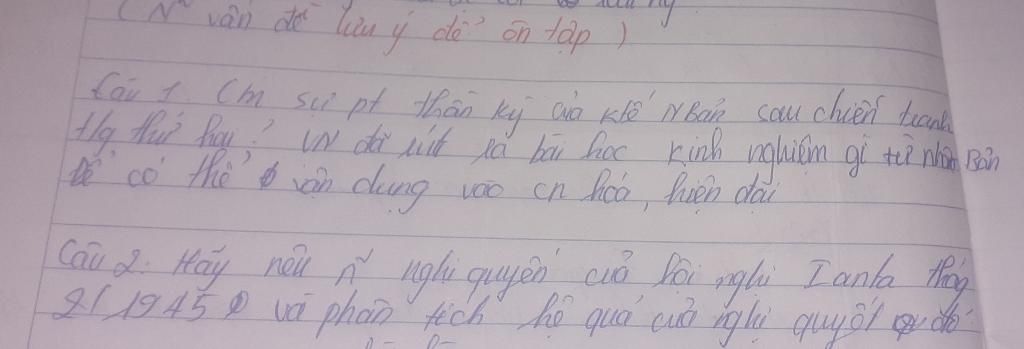 (N~ vấn đề lưu ý để ôn tập)
Câu 1. Cm sự pt thần kỳ của ktế NBản sau chiến tranh
tg thứ hay? VN đã rút ra bài học kinh nghiệm gì từ nhật Bản
để có thể vận dụng vào cn hóa, hiện đại
Câu 2. Hãy nêu n~ nghị quyến của hội nghị Ianta tháng
2/1945 và phân tích hệ quả của nghị quyết đó